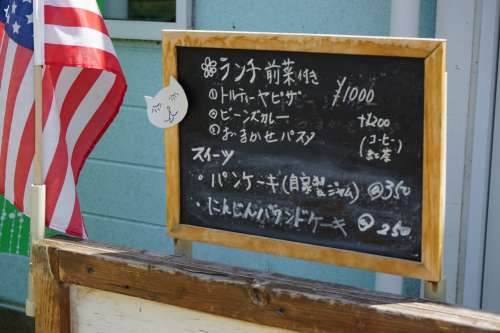 ランチ 前菜付き
① トルティーヤピザ ¥1000
② ビーンズカレー +¥200
③ おまかせパスタ (コーヒー
紅茶)
スイーツ
・パンケーキ(自家製ジャム) @350
・にんじんパウンドケーキ @250